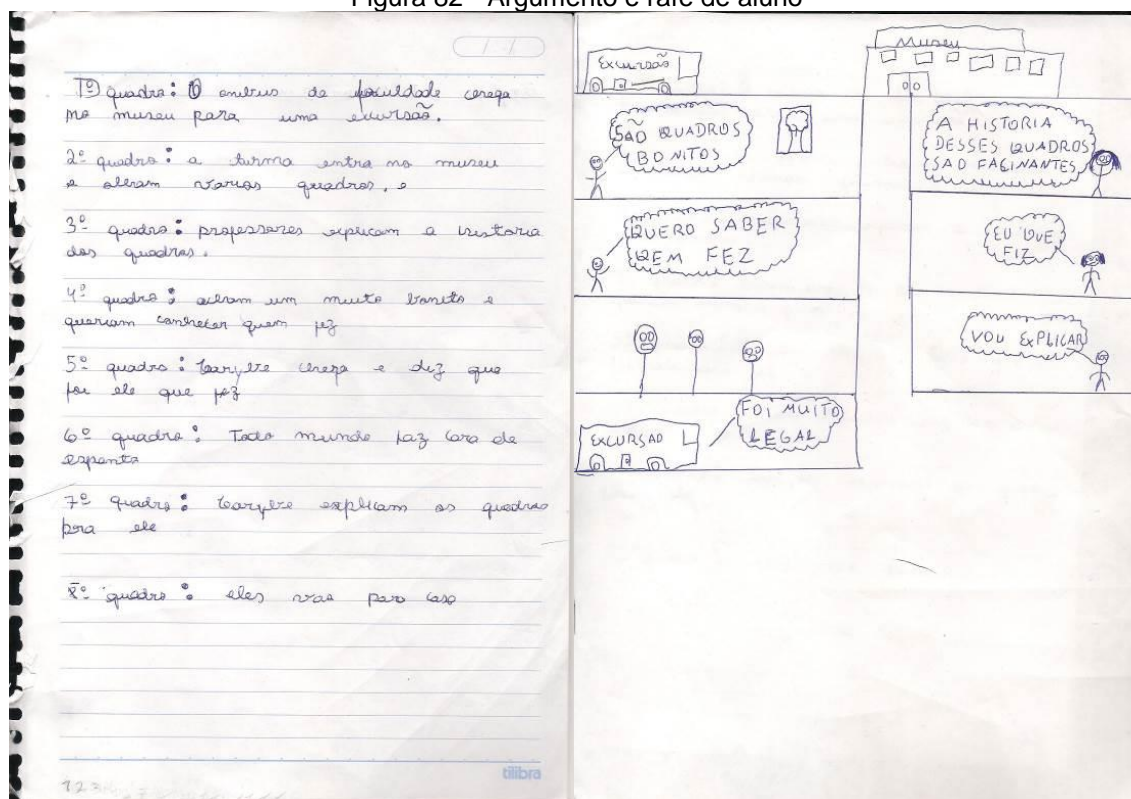 Figura 82 - Argumento e rafe de aluno
1º quadro: O onibus da faculdade cerega
no museu para uma excursão.
2º quadro: a turma entra no museu
e olham varios quadros, e
3º quadro: professores explicam a historia
dos quadros.
4º quadro: acham um muito bonito e
queriam conhecer quem fez
5º quadro: chega e diz que
foi ele que fez
6º quadro: Todo mundo faz cara de
espanto
7º quadro: explicam os quadros
pra ele
8º quadro: eles vao para casa
tilibra
1 2 3
Excursão
Museu
SÃO QUADROS
BONITOS
A HISTORIA
DESSES QUADROS
SAO FACINANTES
QUERO SABER
QEM FEZ
EU QUE
FIZ
VOU EXPLICAR
EXCURSAO
FOI MUITO
LEGAL